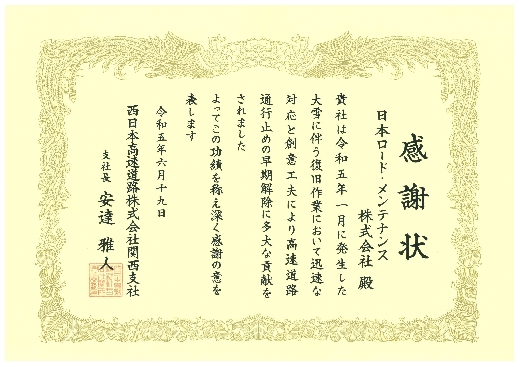 感謝状
日本ロード・メンテナンス
株式会社 殿
貴社は令和五年一月に発生した
大雪に伴う復旧作業において迅速な
対応と創意工夫により高速道路
通行止めの早期解除に多大な貢献を
されました
よってこの功績を称え深く感謝の意を
表します
令和五年六月十九日
西日本高速道路株式会社関西支社
支社長 安達 雅人